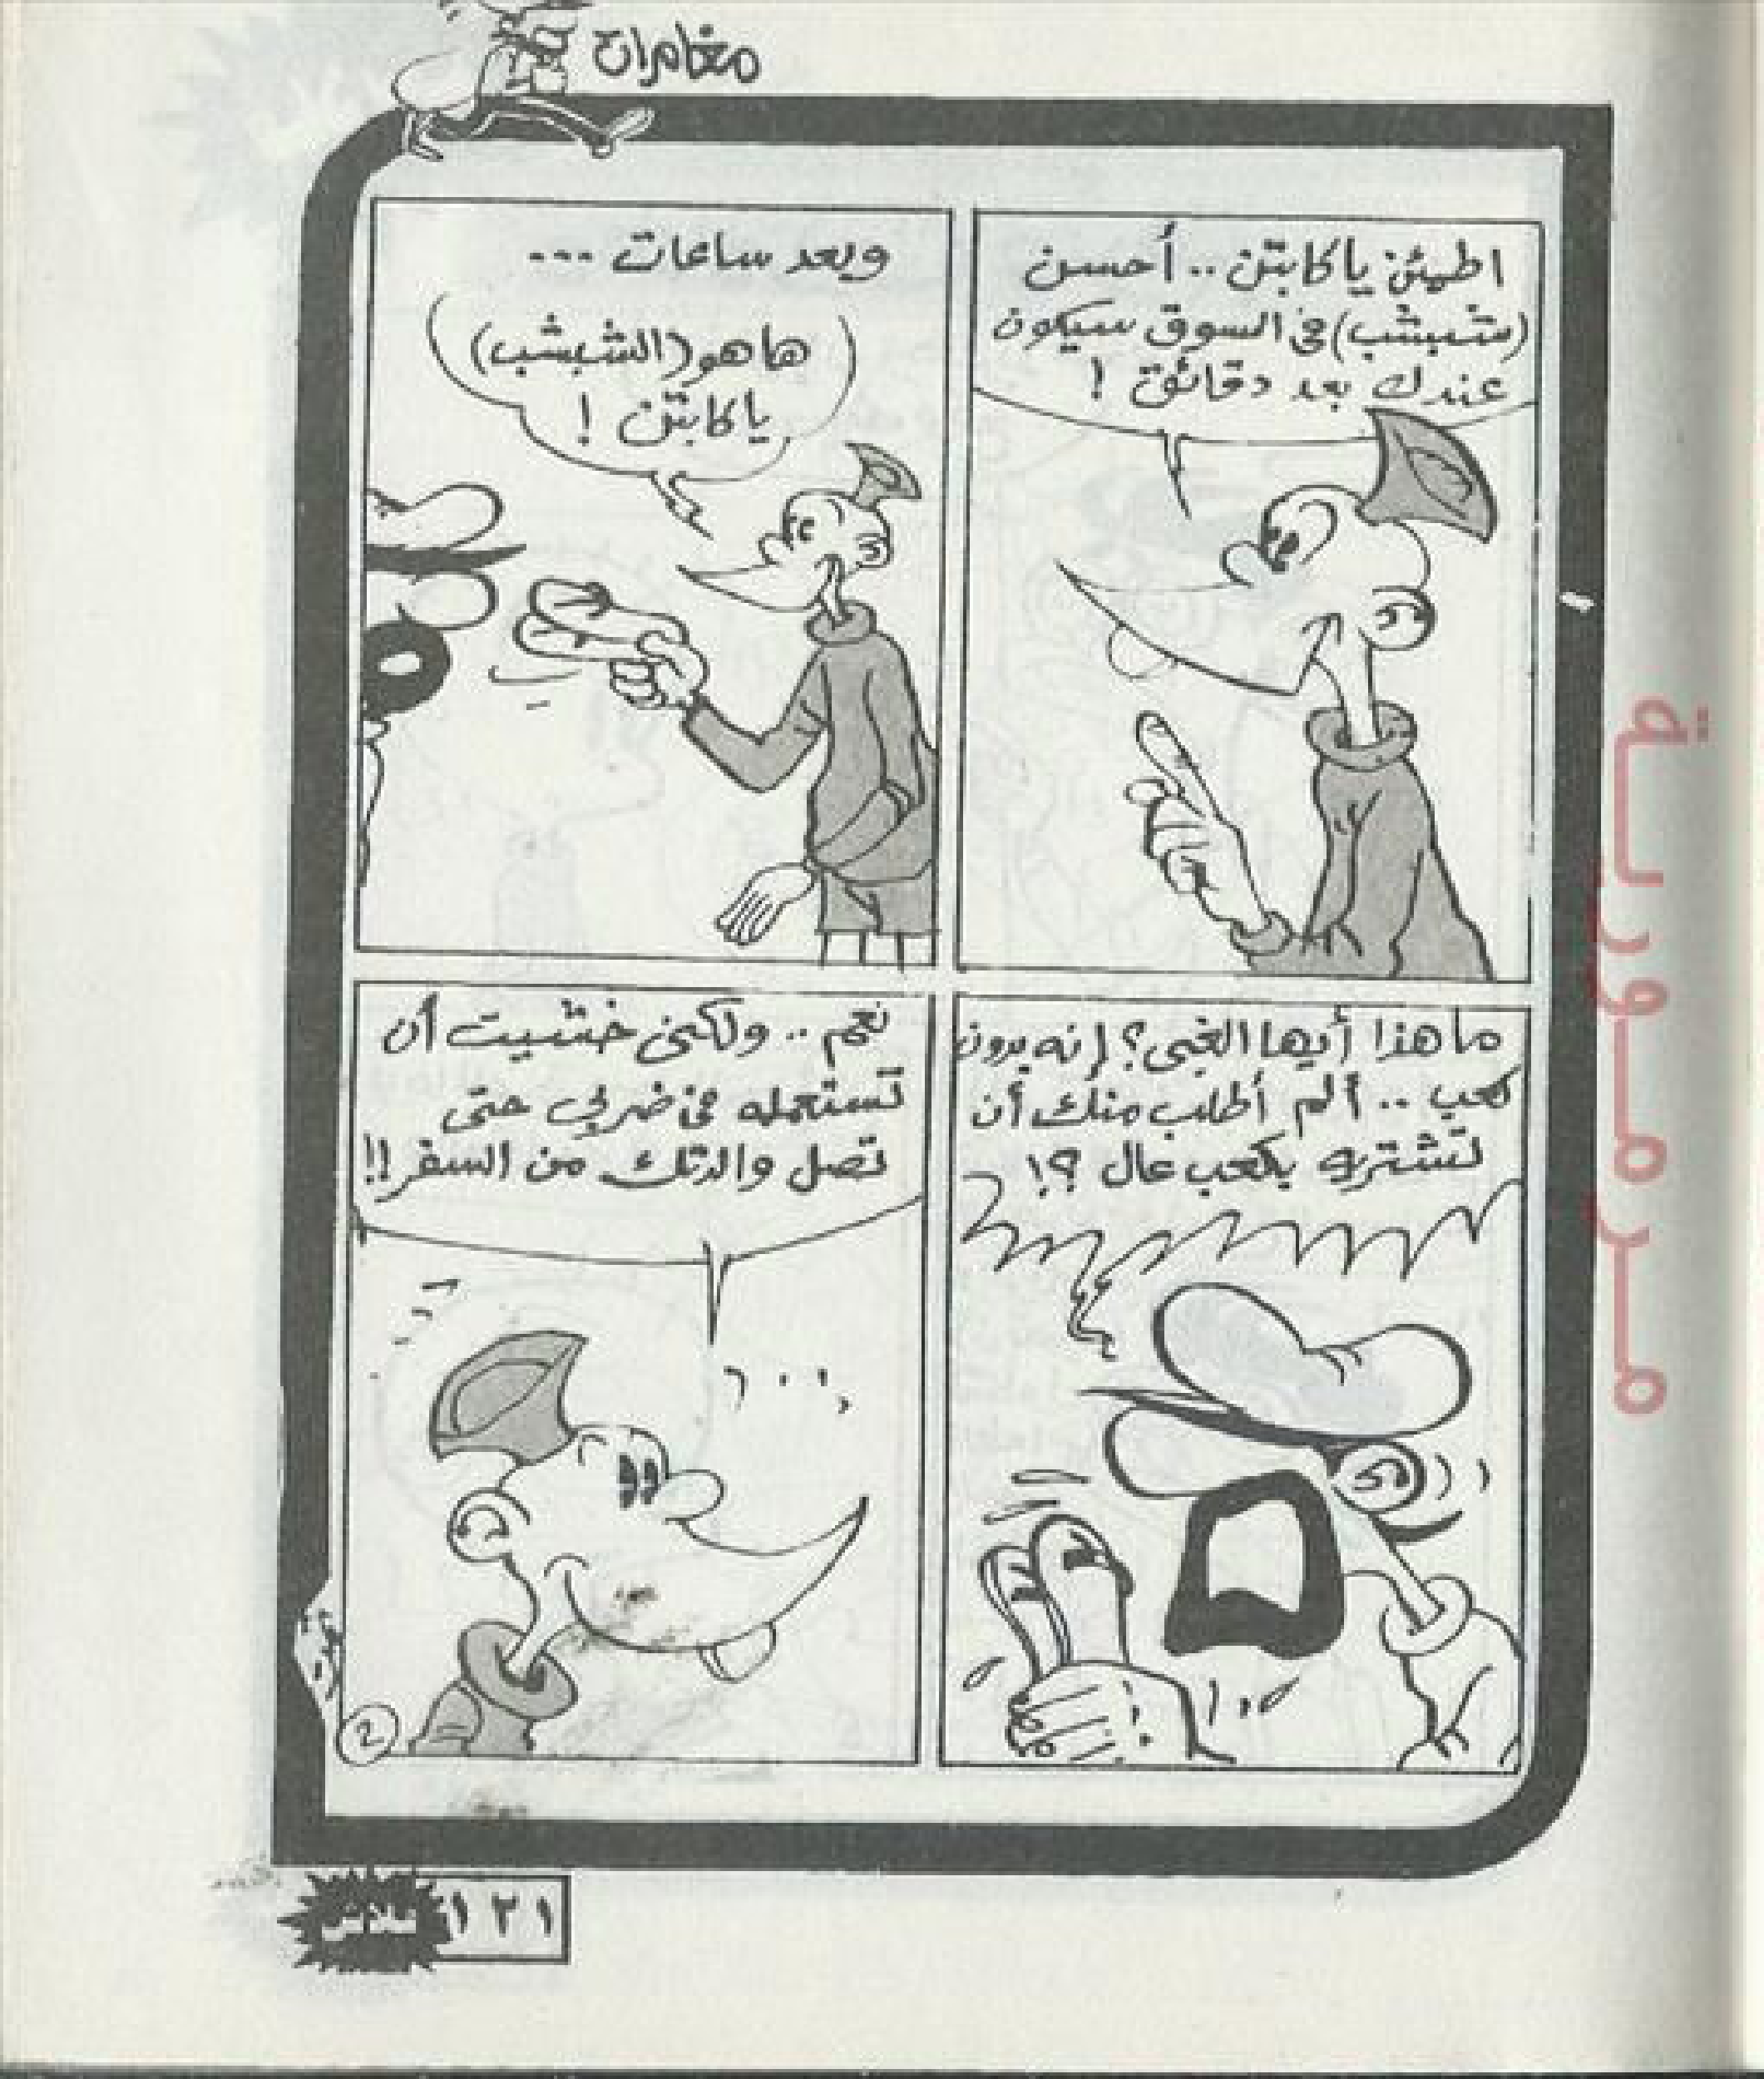 مغامرات
اطمئن ياكابتن.. أحسن
(شبشب) في السوق سيكون
عندك بعد دقائق !
وبعد ساعات ...
هاهو (الشبشب)
ياكابتن !
ماهذا أيها الغبى؟ إنه بدون
كعب .. ألم أطلب منك أن
تشتريه بكعب عال ؟!
نعم .. ولكنى خشيت أن
تستعمله في ضربى حتى
تصل والدتك من السفر!!
2
١٢١
فلاش
مرمورية